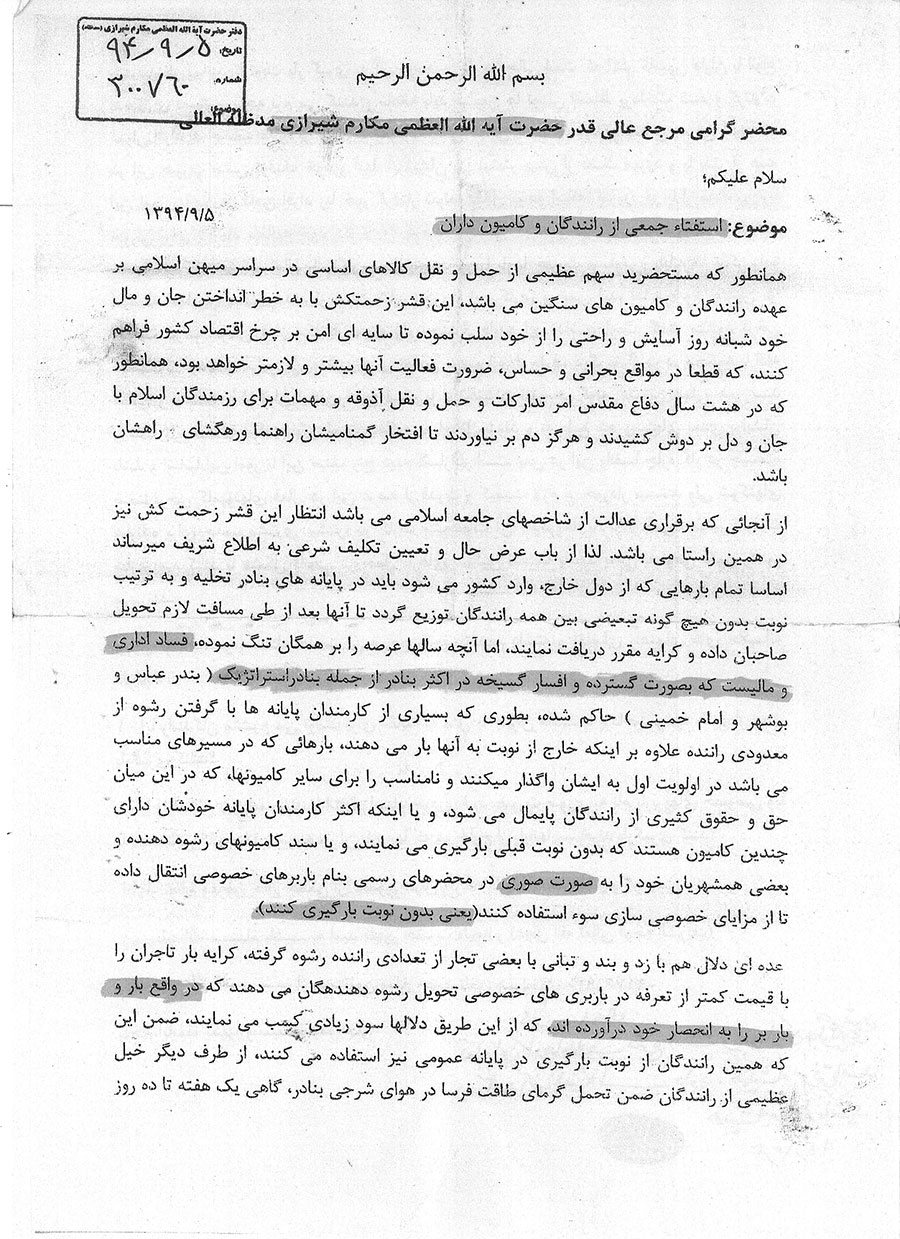 دفتر حضرت آیة الله العظمی مکارم شیرازی (مدظله)
تاریخ: ۹۴/۹/۵
شماره: ۳۰۰۷۶۰
موضوع:
بسم الله الرحمن الرحیم
محضر گرامی مرجع عالی قدر حضرت آیه الله العظمی مکارم شیرازی مدظله العالی
سلام علیکم؛
موضوع: استفتاء جمعی از رانندگان و کامیون داران ۱۳۹۴/۹/۵
همانطور که مستحضرید سهم عظیمی از حمل و نقل کالاهای اساسی در سراسر میهن اسلامی بر
عهده رانندگان و کامیون های سنگین می باشد، این قشر زحمتکش با به خطر انداختن جان و مال
خود شبانه روز آسایش و راحتی را از خود سلب نموده تا سایه ای امن بر چرخ اقتصاد کشور فراهم
کنند، که قطعا در مواقع بحرانی و حساس، ضرورت فعالیت آنها بیشتر و لازمتر خواهد بود، همانطور
که در هشت سال دفاع مقدس امر تدارکات و حمل و نقل آذوقه و مهمات برای رزمندگان اسلام با
جان و دل بر دوش کشیدند و هرگز دم بر نیاوردند تا افتخار گمنامیشان راهنما ورهگشای راهشان
باشد.
از آنجائی که برقراری عدالت از شاخصهای جامعه اسلامی می باشد انتظار این قشر زحمت کش نیز
در همین راستا می باشد. لذا از باب عرض حال و تعیین تکلیف شرعی به اطلاع شریف میرساند
اساسا تمام بارهایی که از دول خارج، وارد کشور می شود باید در پایانه های بنادر تخلیه و به ترتیب
نوبت بدون هیچ گونه تبعیضی بین همه رانندگان توزیع گردد تا آنها بعد از طی مسافت لازم تحویل
صاحبان داده و کرایه مقرر دریافت نمایند، اما آنچه سالها عرصه را بر همگان تنگ نموده، فساد اداری
و مالیست که بصورت گسترده و افسار گسیخه در اکثر بنادر از جمله بنادراستراتژیک ( بندر عباس و
بوشهر و امام خمینی ) حاکم شده، بطوری که بسیاری از کارمندان پایانه ها با گرفتن رشوه از
معدودی راننده علاوه بر اینکه خارج از نوبت به آنها بار می دهند، بارهائی که در مسیرهای مناسب
می باشد در اولویت اول به ایشان واگذار میکنند و نامناسب را برای سایر کامیونها، که در این میان
حق و حقوق کثیری از رانندگان پایمال می شود، و یا اینکه اکثر کارمندان پایانه خودشان دارای
چندین کامیون هستند که بدون نوبت قبلی بارگیری می نمایند، و یا سند کامیونهای رشوه دهنده و
بعضی همشهریان خود را به صورت صوری در محضرهای رسمی بنام باربرهای خصوصی انتقال داده
تا از مزایای خصوصی سازی سوء استفاده کنند(یعنی بدون نوبت بارگیری کنند).
عده ای دلال هم با زد و بند و تبانی با بعضی تجار از تعدادی راننده رشوه گرفته، کرایه بار تاجران را
با قیمت کمتر از تعرفه در باربری های خصوصی تحویل رشوه دهندهگان می دهند که در واقع بار و
بار بر را به انحصار خود درآورده اند، که از این طریق دلالها سود زیادی کسب می نمایند، ضمن این
که همین رانندگان از نوبت بارگیری در پایانه عمومی نیز استفاده می کنند، از طرف دیگر خیل
عظیمی از رانندگان ضمن تحمل گرمای طاقت فرسا در هوای شرجی بنادر، گاهی یک هفته تا ده روز